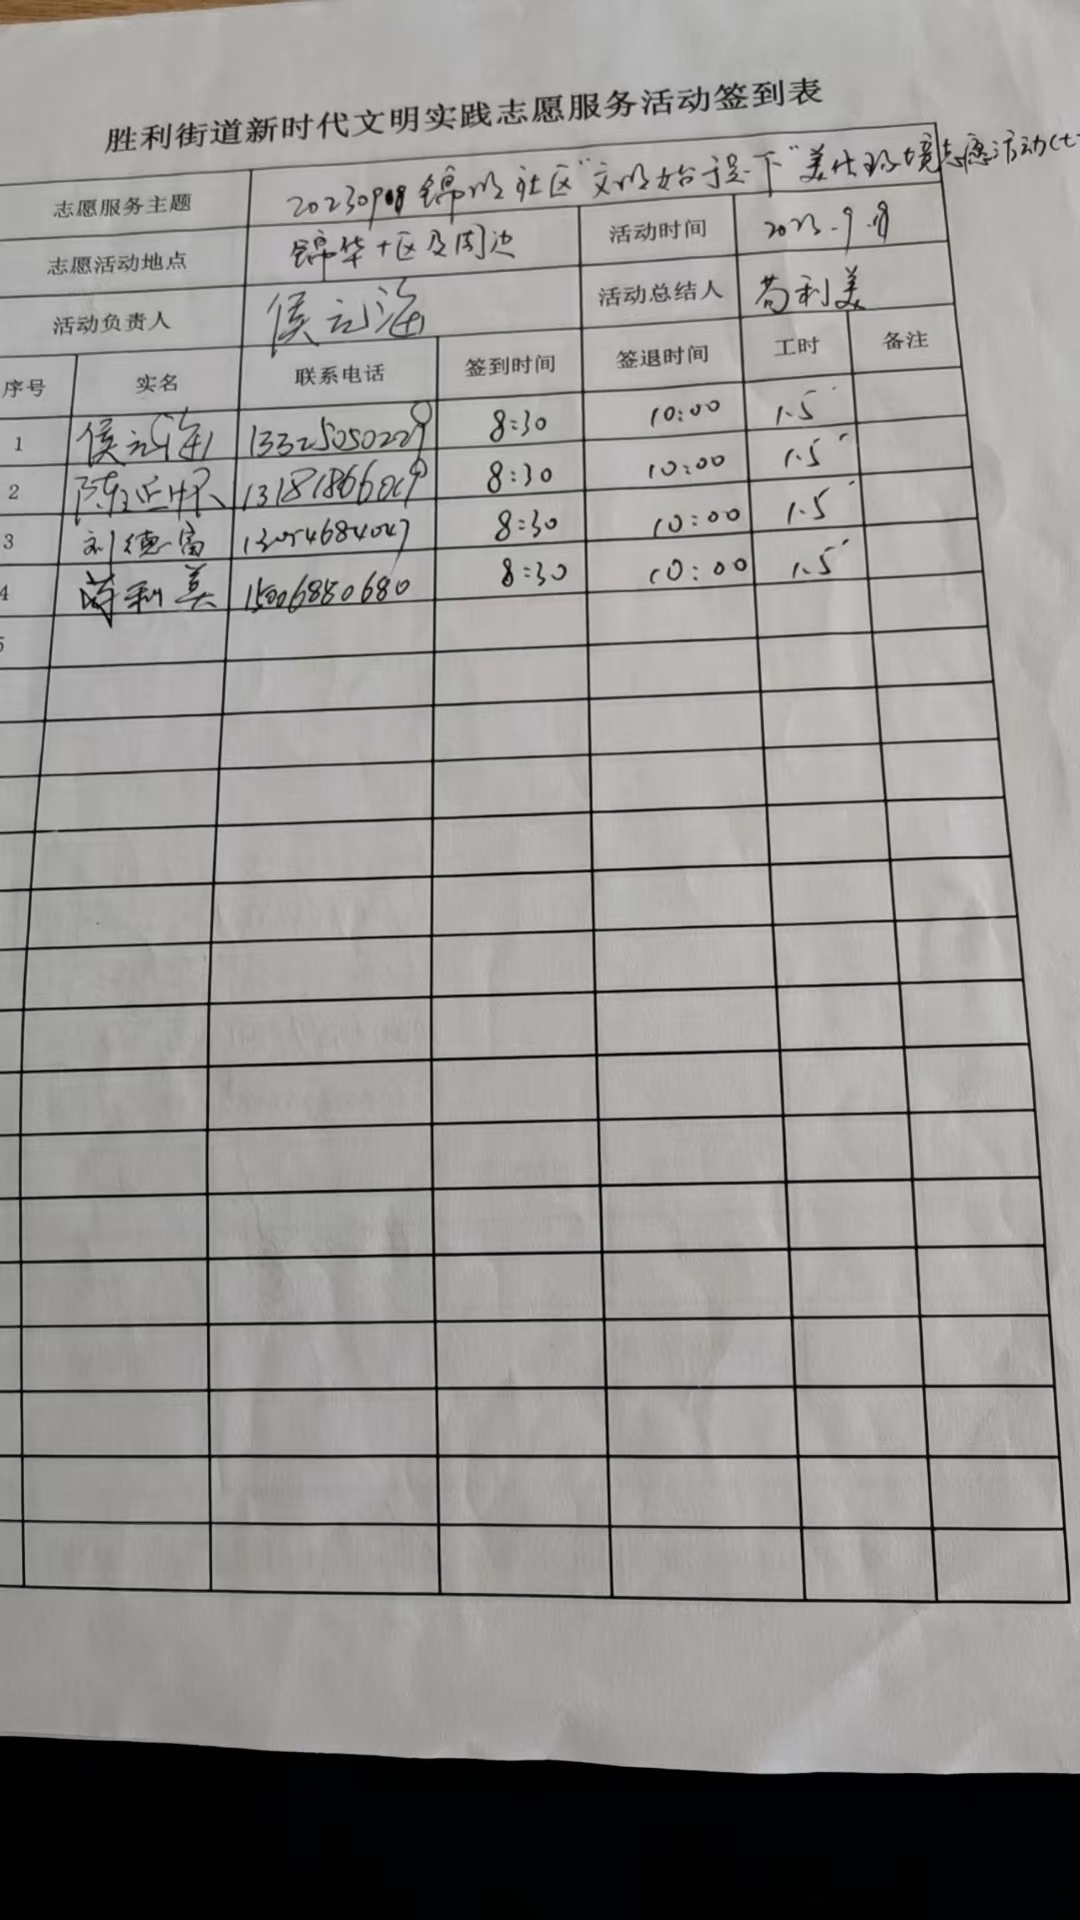 胜利街道新时代文明实践志愿服务活动签到表
志愿服务主题 锦明社区“文明始于足下”美化环境志愿活动(七
志愿活动地点 锦华十区及周边 活动时间 2023.9.
活动负责人 侯元海 活动总结人 苟利美
序号 实名 联系电话 签到时间 签退时间 工时 备注
1 侯元海 13325050229 8:30 10:00 1.5
2 陈 13181866019 8:30 10:00 1.5
3 刘德富 8:30 10:00 1.5
4 苟利美 15006880680 8:30 10:00 1.5
5